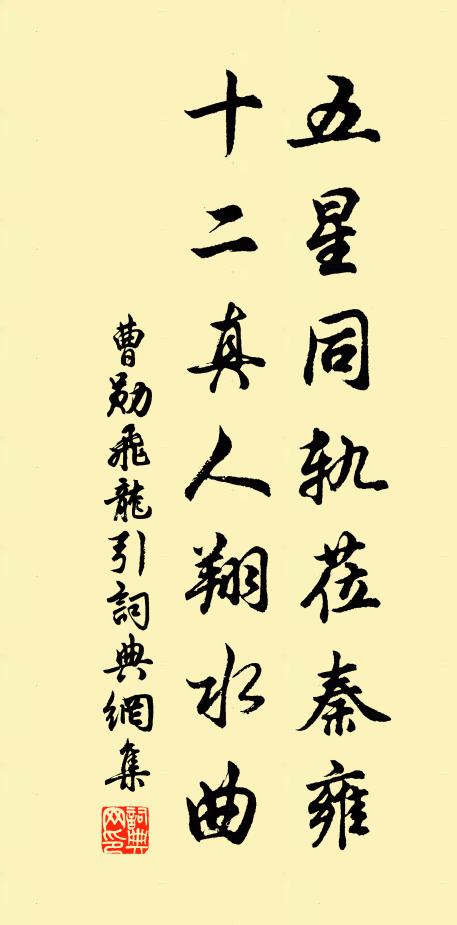 五星同軌莅秦雍
十二真人翔水曲
曹勛飛龍引詞典網集
詞典网印